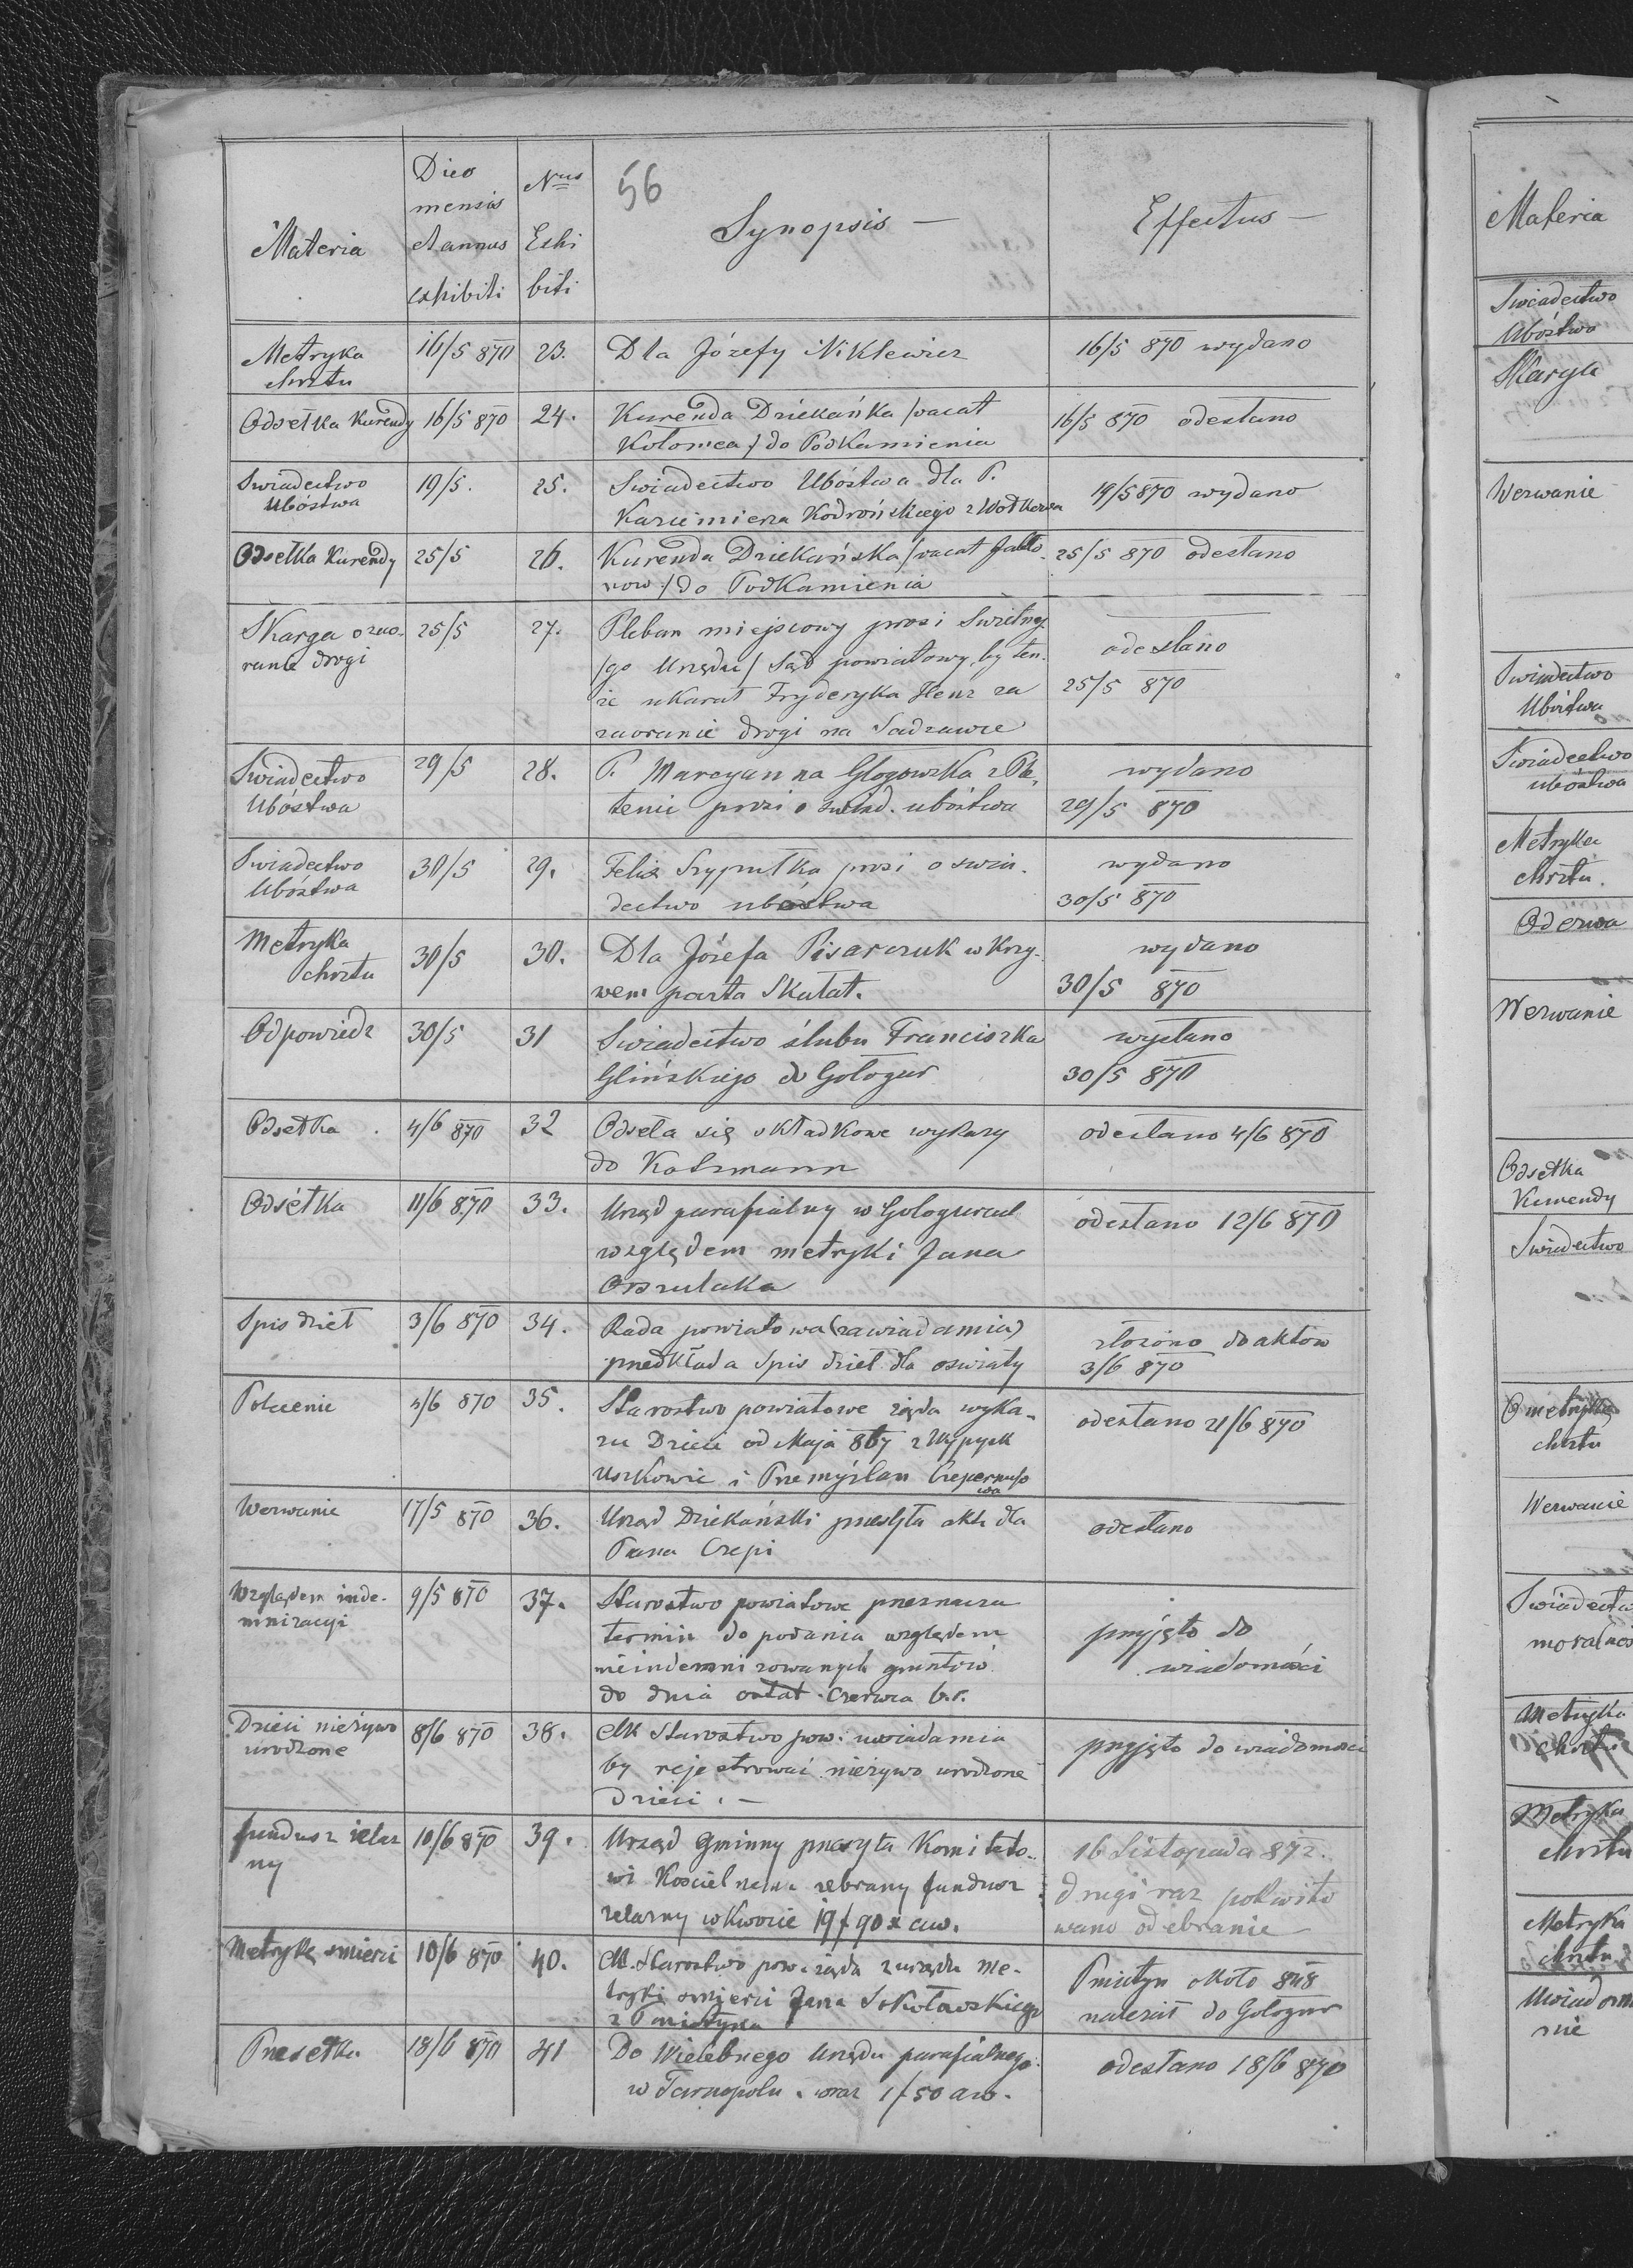 56
Materia
Dies
mensis
et annus
exhibiti
Nrus
Exhi
biti
Synopsis —
Effectus —
Metryka
chrztu
16/5 870
23.
Dla Józefy Niklewicz
16/5 870 wydano
Odsełka Kurendy
16/5 870
24.
Kurenda Dziekańska /vacat
Kołomea/ do Podkamienia
16/5 870 odesłano
Swiadectwo
Ubóstwa
19/5.
25.
Swiadectwo Ubóstwa dla P.
Kazimierza
19/5 870 wydano
Odsełka Kurendy
25/5
26.
Kurenda Dziekańska /vacat Jabło-
now./ do Podkamienia
25/5 870 odesłano
Skarga o zao-
ranie drogi
25/5
27.
Pleban miejscowy prosi Swietny
/go Urzędu/ Sąd powiatowy, by ten-
że ukarał Fryderyka Henz za
zaoranie drogi na Sadzawce
odesłano
25/5 870
Swiadectwo
Ubóstwa
29/5
28.
P. Maryanna Głogowska z Ple-
tenic prosi o swiad. ubóstwa
wydano
29/5 870
Swiadectwo
Ubóstwa
30/5
29.
Felix Szyprułka prosi o swia-
dectwo ubóstwa
wydano
30/5 870
Metryka
chrztu
30/5
30.
Dla Józefa Pisarczuk w Krzy-
wem poszta Skałat.
wydano
30/5 870
Odpowiedz
30/5
31
Swiadectwo ślubu Franciszka
Glińskiego do Gołogór
wysłano
30/5 870
Odsełka
4/6 870
32
Odseła się składkowe wykazy
do Kotzmann
odesłano 4/6 870
Odsełka
11/6 870
33.
Urząd parafialny w Gologurach
względem metryki Jana
Orszulaka
odesłano 12/6 870
Spis dzieł
3/6 870
34.
Rada powiatowa (zawiadamia)
przedkłada Spis dzieł dla oswiaty
złożono do aktów
3/6 870
Polecenie
4/6 870
35.
Starostwo powiatowe ząda wyka-
zu Dzieci od Maja 867 z Wypysk
Uszkowic i Przemyślan
odesłano 21/6 870
Wezwanie
17/5 870
36.
Urząd Dziekański przesyła akta dla
Pana Czepi
odesłano
Względem inde-
mnizacyi
9/5 870
37.
Starostwo powiatowe przeznacza
termin do podania względem
nieindemnizowanych gruntów
do dnia ostat. Czerwca b.r.
przyjęto do
wiadomości
Dzieci nieżywo
urodzone
8/6 870
38.
CK Starostwo pow. uwiadamia
by rejestrować nieżywo urodzone
Dzieci. —
przyjęto do wiadomosci
fundusz żelaz
ny
10/6 870
39.
Urząd Gminny przesyła Komiteto-
wi Koscielnemu zebrany fundusz
żelazny w kwocie 19 f 90 x aw.
16 Listopada 872.
drugi raz pokwito
wano odebranie
Metrykę smierci
10/6 870
40.
CK. Starostwo pow. ząda z urzędu me-
tryki smierci Jana Sokołowskiego
z Pniatyna
Pniatyn około 848
należał do Gołogór
Przesełka
18/6 870
41
Do Wielebnego Urzędu parafialnego
w Tarnopolu. wraz 1 f 50 aw.
odesłano 18/6 870
Materia
Swiadectwo
Ubóstwa
Skarga
Wezwanie
Swiadectwo
Ubóstwa
Swiadectwo
ubóstwa
Metryka
chrztu.
Odezwa
Wezwanie
Odsełka
Kurrendy
Swiadectwo
O metrykę
chrztu
Wezwanie
Swiadectw
moralnos
Metryka
chrztu
Metryka
chrztu
Metryka
chrztu
Uwiadom
nie